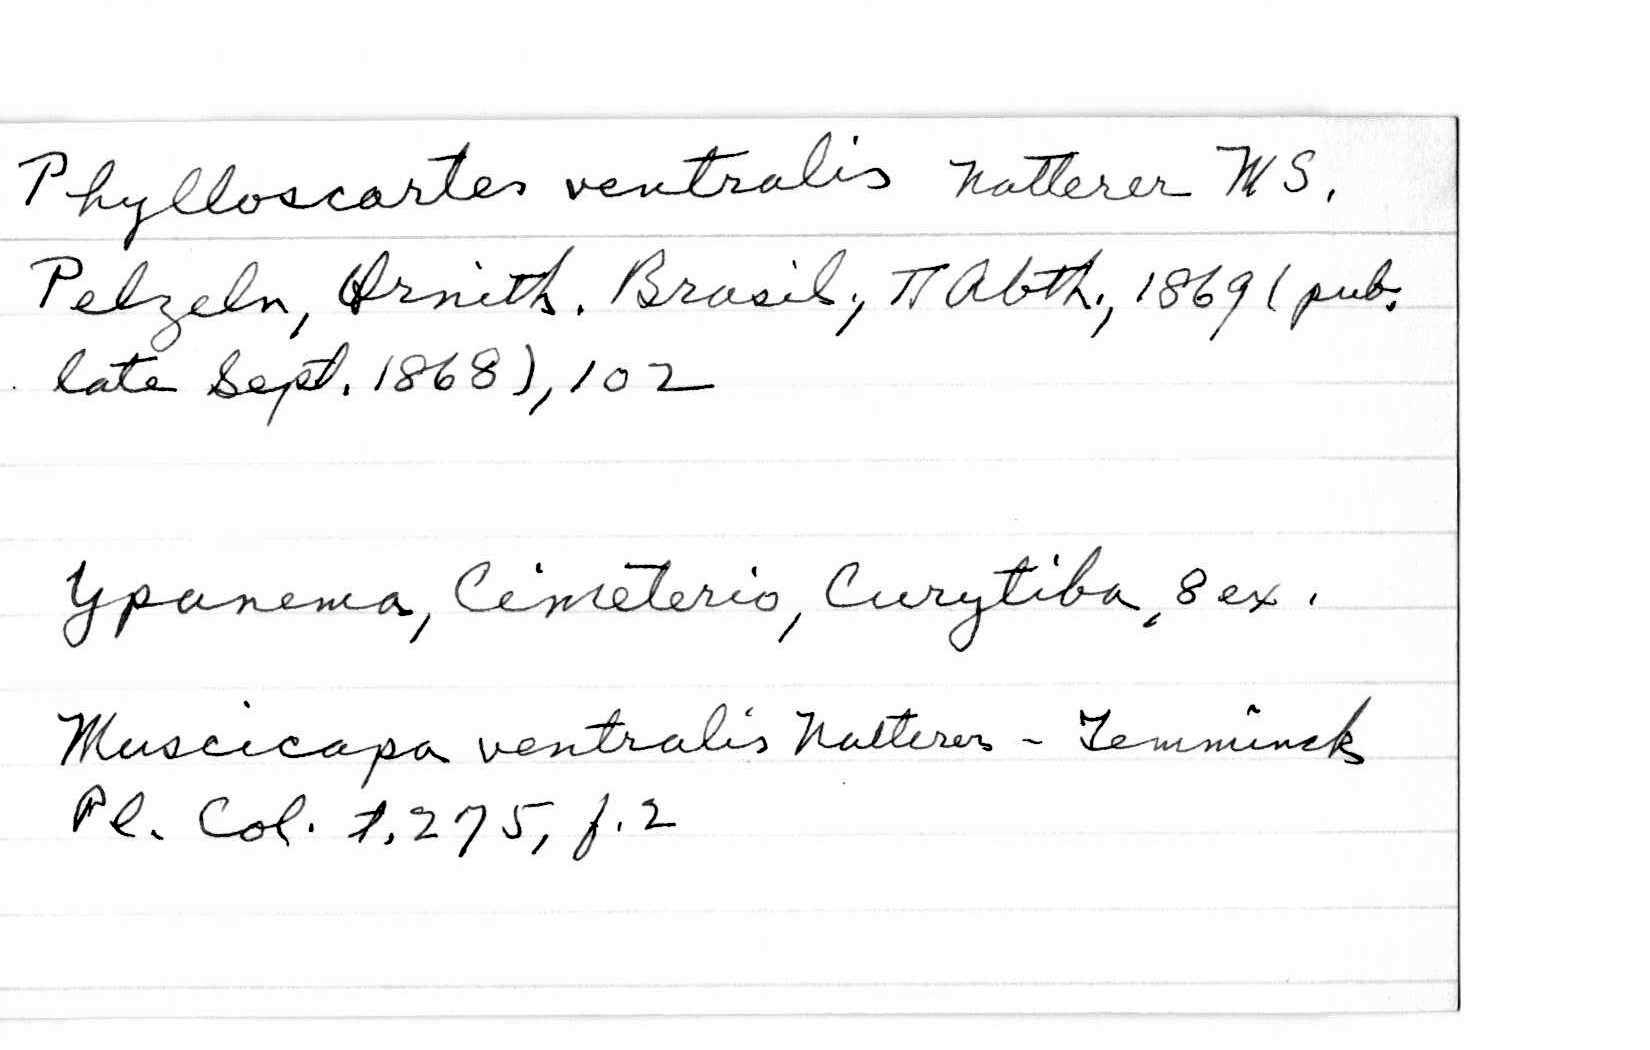 Phylloscartes ventralis Natterer MS.
Pelzeln, Ornith. Brasil., II Abth., 1869 (pub.
late Sept. 1868), 102
Ypanema, Cimeterio, Curytiba, 8 ex.
Muscicapa ventralis Natterer - Temminck
Pl. Col. t. 275, f. 2